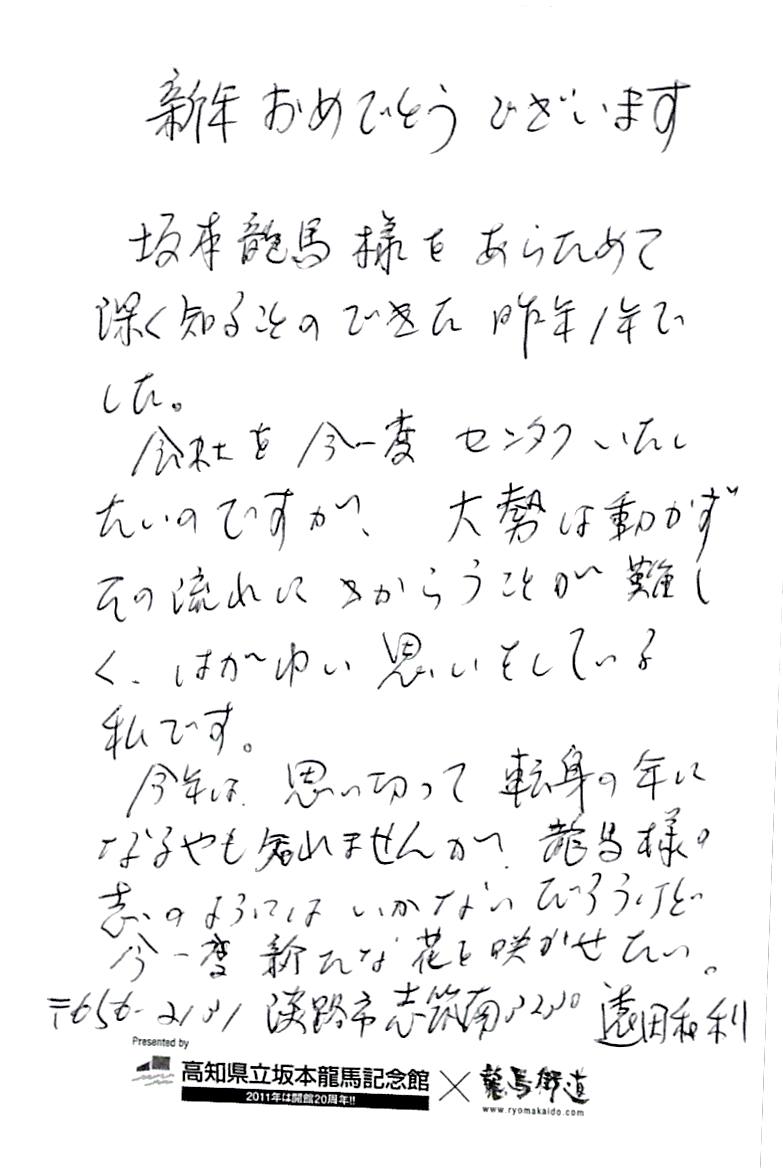 新年おめでとうございます
坂本龍馬様をあらためて
深く知ることのできた昨年1年で
した。
会社を今一度センタクいたし
たいのですが、大勢は動かず
その流れにさからうことが難し
く、はがゆい思いをしている
私です。
今年は、思い切って転身の年に
なるやも知れませんが、龍馬様の
志のようにはいかないだろうけど
今一度新たな花を咲かせたい。
〒656-2131 淡路市志筑南 遠田和利
Presented by
高知県立坂本龍馬記念館×龍馬街道
2011年は開館20周年!!
www.ryomakaido.com